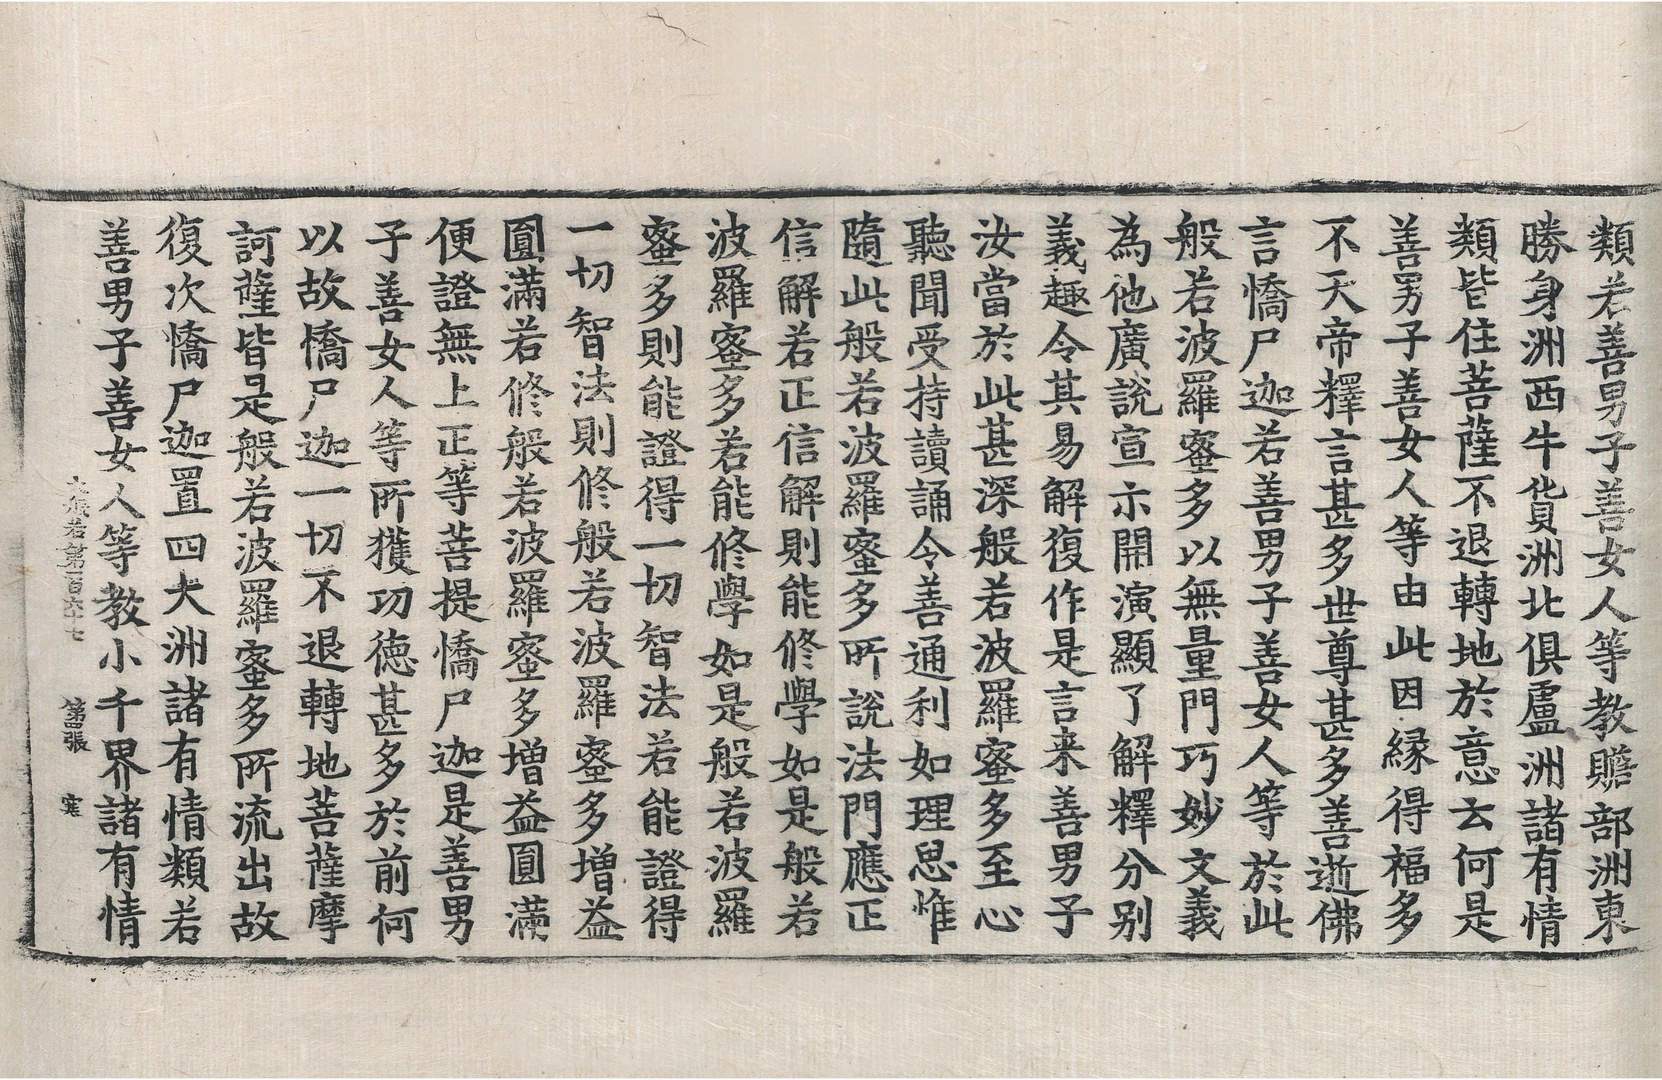 類若善男子善女人等教贍部洲東
勝身洲西牛貨洲北俱盧洲諸有情
類皆住菩薩不退轉地於意云何是
善男子善女人等由此因緣得福多
不天帝釋言甚多世尊甚多善逝佛
言憍尸迦若善男子善女人等於此
般若波羅蜜多以無量門巧妙文義
為他廣說宣示開演顯了解釋分別
義趣令其易解復作是言来善男子
汝當於此甚深般若波羅蜜多至心
聽聞受持讀誦令善通利如理思惟
隨此般若波羅蜜多所說法門應正
信解若正信解則能修學如是般若
波羅蜜多若能修學如是般若波羅
蜜多則能證得一切智法若能證得
一切智法則修般若波羅蜜多增益
圓滿若修般若波羅蜜多增益圓滿
便證無上正等菩提憍尸迦是善男
子善女人等所獲功德甚多於前何
以故憍尸迦一切不退轉地菩薩摩
訶薩皆是般若波羅蜜多所流出故
復次憍尸迦置四大洲諸有情類若
善男子善女人等教小千界諸有情
大般若第一百六十七 第四張 寒